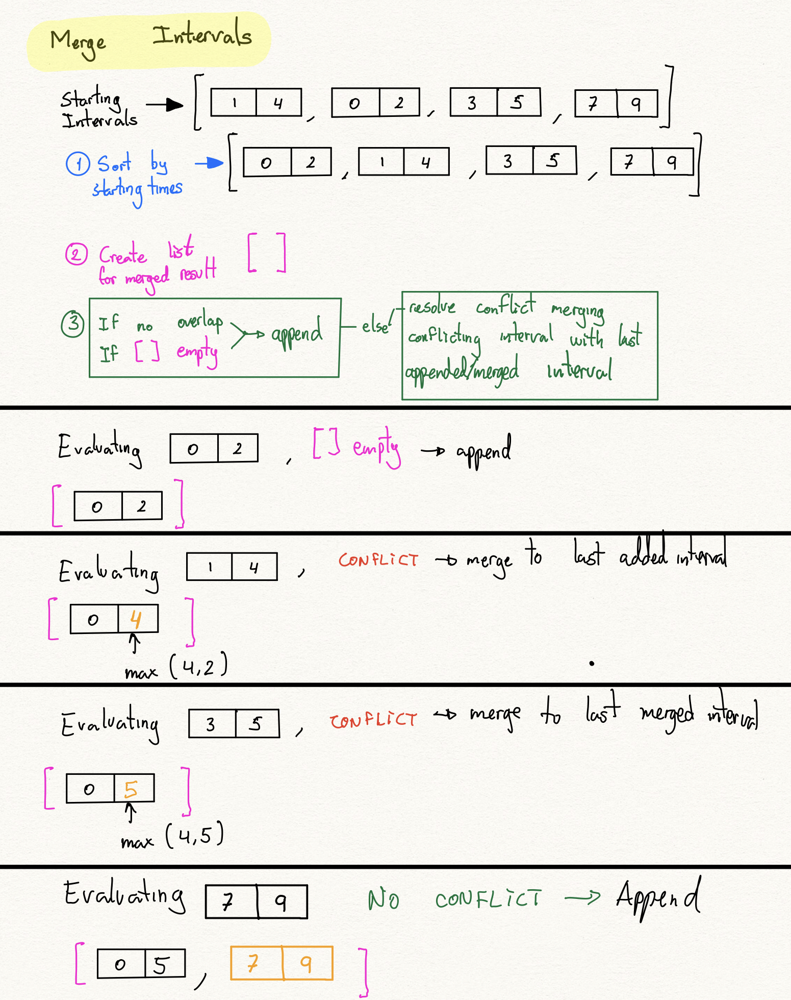 Merge Intervals
Starting Intervals → [ 1 4 , 0 2 , 3 5 , 7 9 ]
① Sort by starting times → [ 0 2 , 1 4 , 3 5 , 7 9 ]
② Create list [ ]
for merged result
③ If no overlap
If [ ] empty
→ append
else
resolve conflict merging
conflicting interval with last
appended/merged interval
Evaluating 0 2 , [ ] empty → append
[ 0 2 ]
Evaluating 1 4 , CONFLICT → merge to last added interval
[ 0 4 ]
max (4,2)
Evaluating 3 5 , CONFLICT → merge to last merged interval
[ 0 5 ]
max (4,5)
Evaluating 7 9 No CONFLICT → Append
[ 0 5 , 7 9 ]